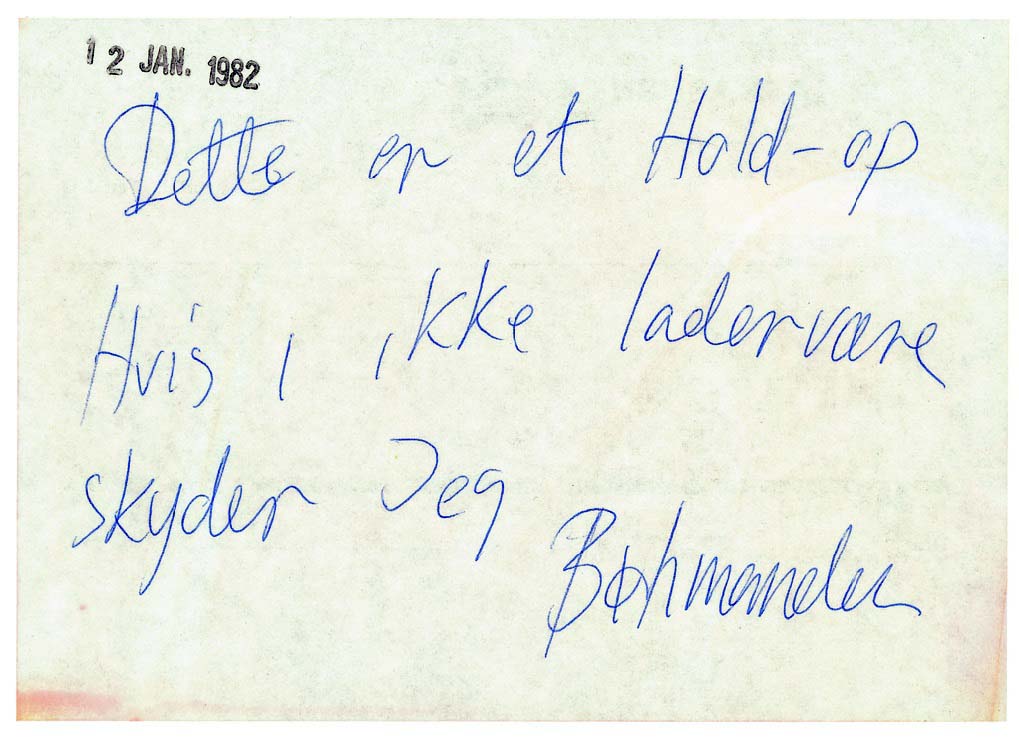 12 JAN. 1982
Dette er et Hold-op
Hvis i ikke ladervære
skyder Jeg
Bøhmanden